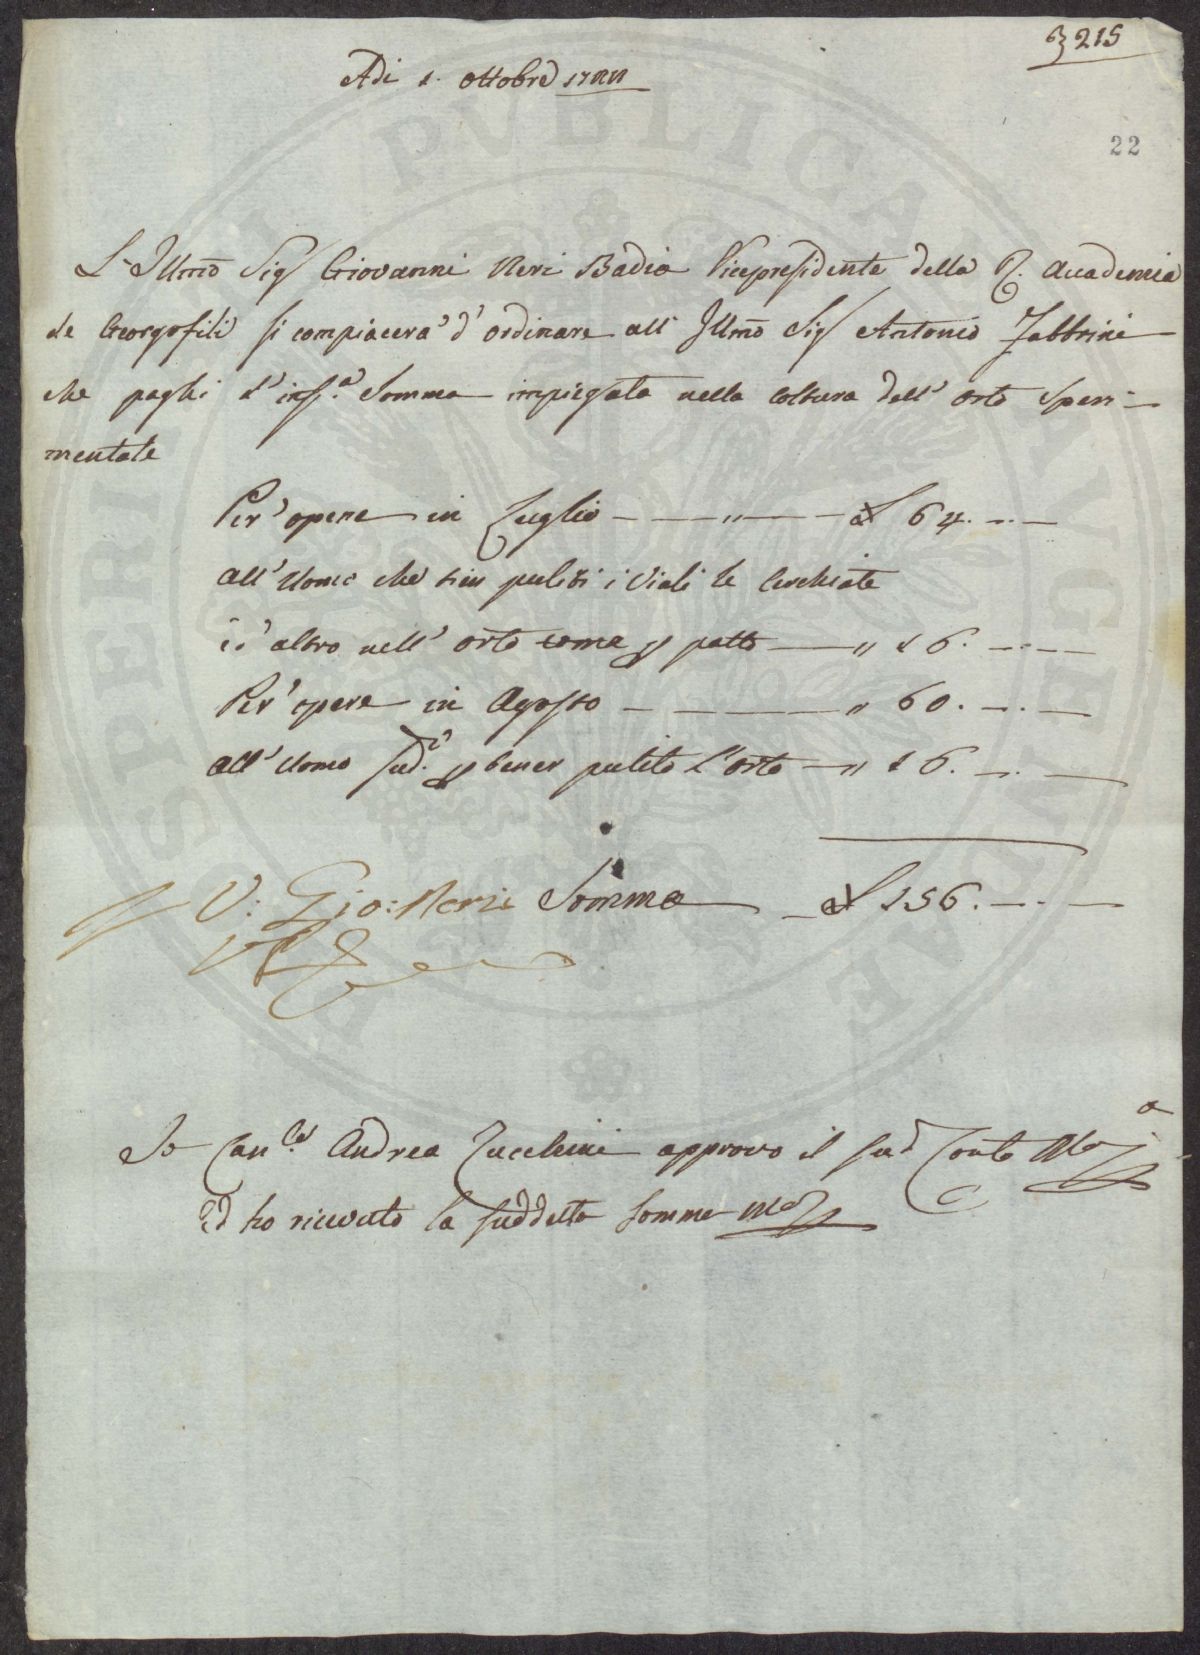 215
Adi 1. Ottobre 1788
22
L'Illmõ Sig Giovanni Neri Badia Vicepresidente della R. Accademia
de Georgofili si compiacerà d'ordinare all' Illmõ Sig Antonio Fabbrini
che paghi l'infª Somma impiegata nella Coltura dell' Orto Speri-
mentale
Per opere in Luglio — " — £ 64. — .. —
all' Uomo che tien puliti i Viali le Cerchiate
ed altro nell' orto come p patto — " 16. — .. —
Per opere in Agosto — " 60. — .. —
all' Uomo sud.º p tener pulito l'Orto — " 16. — .. —
V: Gio: Neri Somma — £ 156. — .. —
VP
Io Can.co Andrea Zucchini approvo il sud Conto
Ed ho ricevuto la suddetta somma
ASPERI PVBLICA AVGENDAE